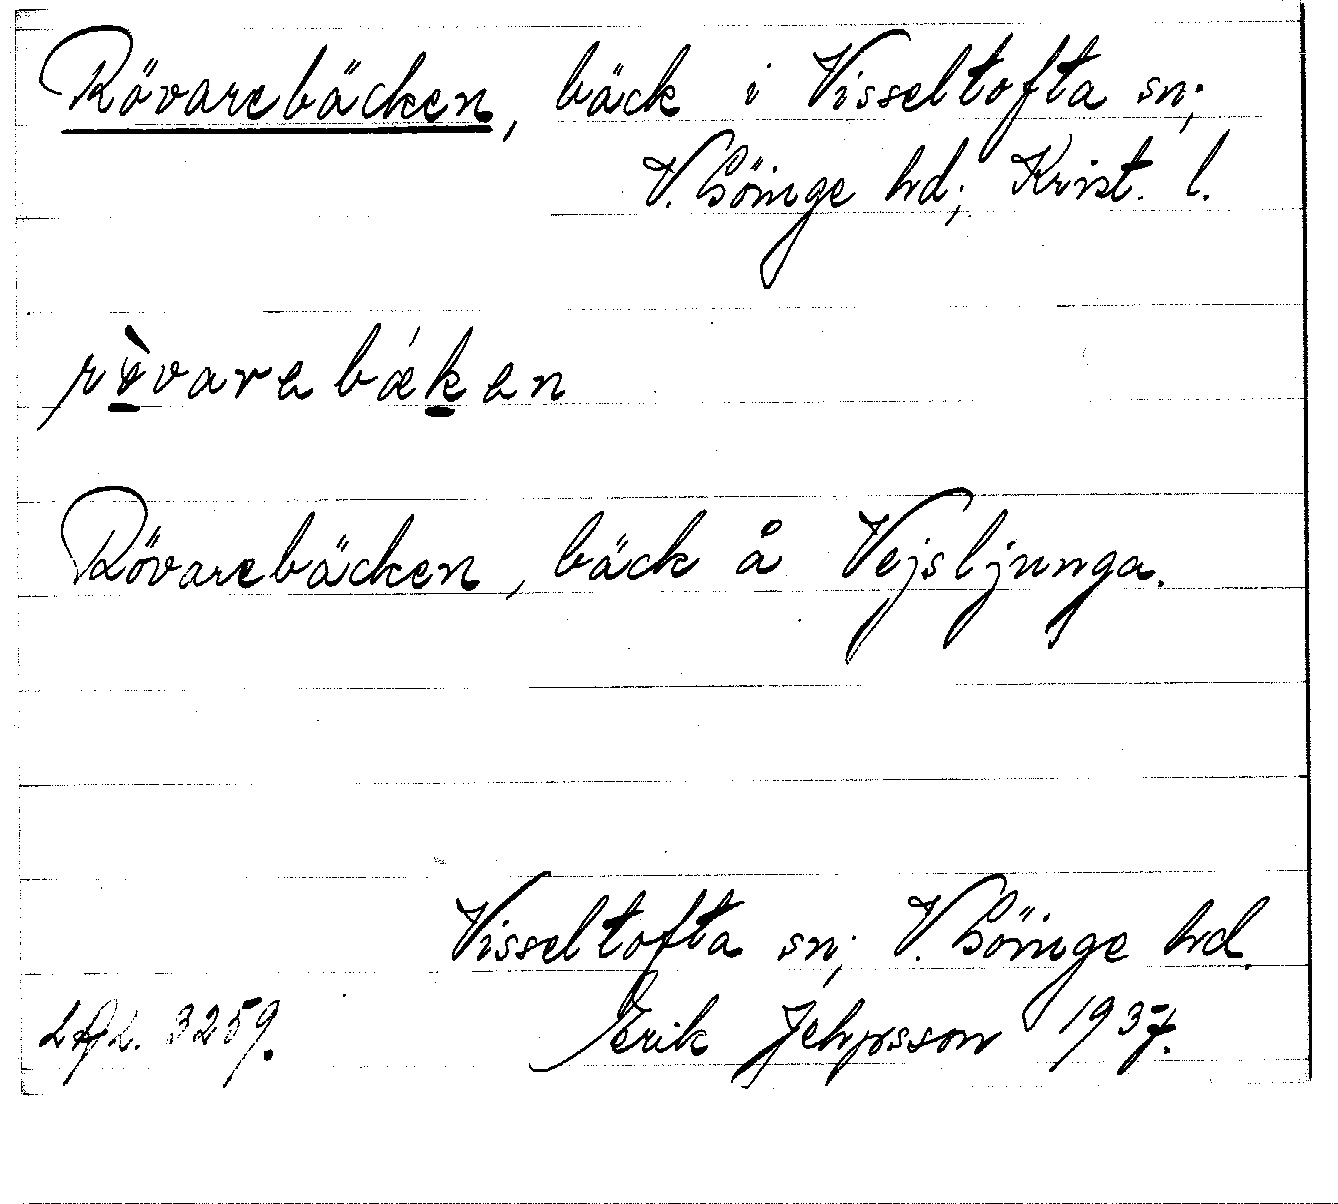 Rövarebäcken, bäck i Visseltofta sn;
V. Göinge hd; Krist. l.
rövarebäken
Rövarebäcken, bäck å Vejsljunga.
Visseltofta sn; V. Göinge hd.
3259. Erik Jeppsson 1937.